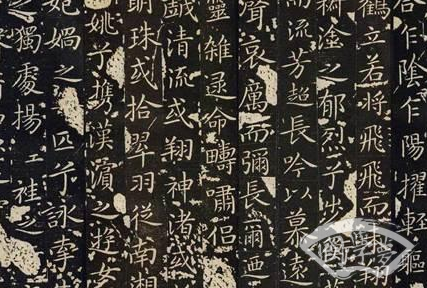 乍陰乍陽擢輕軀
鶴立若將飛飛而未翔
塗之郁烈步衡
而流芳超長吟以慕遠
聲哀厲而彌長爾迺
靈雜遝命疇嘯侶
戲清流或翔神渚或
明珠或拾翠羽從南湘
姚兮攜漢濱之遊女
媧之匹兮詠牽
獨處揚袿之